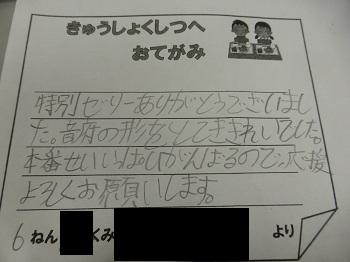 きゅうしょくしつへ
おてがみ
特別ゼリーありがとうございまし
た。音府の形をしてきれいでした。
本番せいいっぱいがんばるので、応援
よろしくお願いします。
6ねん くみ より